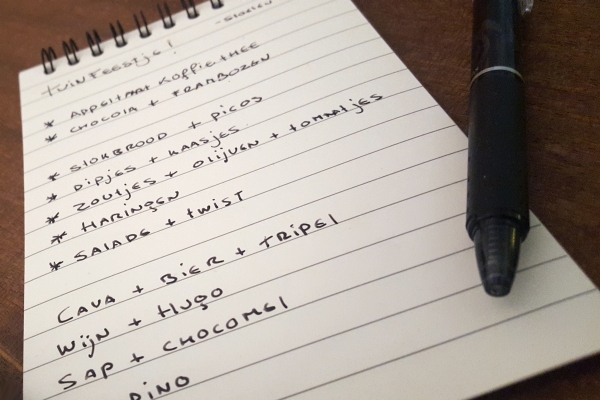 - STOELEN
tuinfeestje!
* APPELTAART KOFFIE THEE
* CHOCOLA + FRAMBOZEN
* STOKBROOD + PICOS
* DIPJES + KAASJES
* ZOUTJES + OLIJVEN + TOMAATJES
* HARINGEN
* SALADE + TWIST
CAVA + BIER + TRIPEL
WIJN + HUGO
SAP + CHOCOMEL